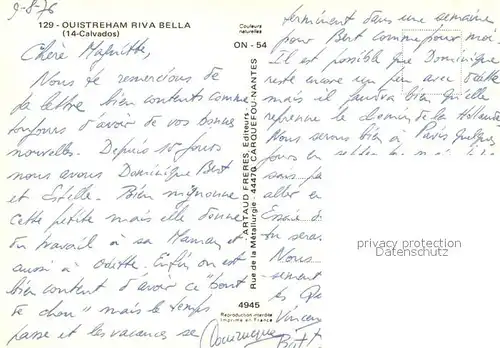 9-8-76
129 - OUISTREHAM RIVA BELLA
(14-Calvados)
Couleurs
naturelles
ON - 54
Chère
Nous te remercions de
ta lettre bien contents comme
toujours d'avoir de vos bonnes
nouvelles. Depuis 10 jours
nous avons Dominique Bert
et Estelle. Bien mignonne
cette petite mais elle donne
du travail à sa Maman et
aussi à Odette. Enfin on est
bien content d'avoir ce "bout
de chou" mais le temps
passe et les vacances se
terminent dans une semaine
pour Bert comme pour moi
Il est possible que Dominique
reste encore un peu avec
mais il faudra bien qu'elle
reprenne le chemin de la
Nous serons bien à Paris quelques
jours en
sans
aller en
Essaie
tu seras
Nous
Vincen
Dominique
Bert
ARTAUD FRERES, Editeurs
Rue de la Métallurgie - 44470 CARQUEFOU-NANTES
4945
Reproduction interdite
Imprimé en France
privacy protection
Datenschutz